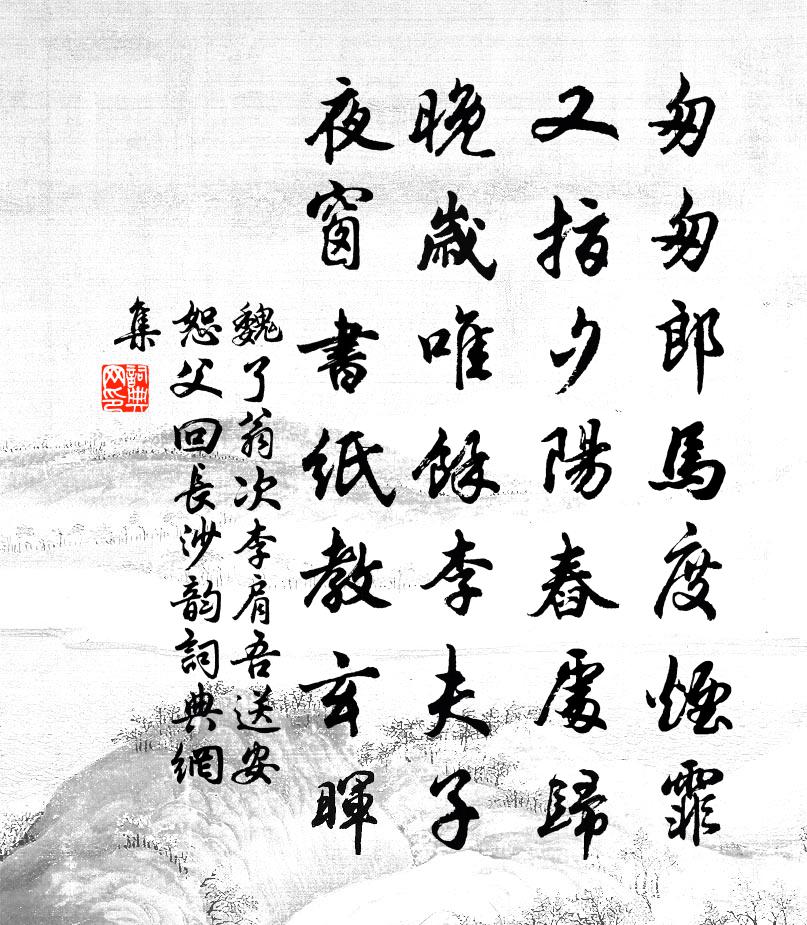 匆匆郎馬度煙霏
又指夕陽舂處歸
晚歲唯餘李夫子
夜窗書紙教玄暉
魏了翁次李肩吾送安
恕父回長沙韵詞典網
集
詞典
网印